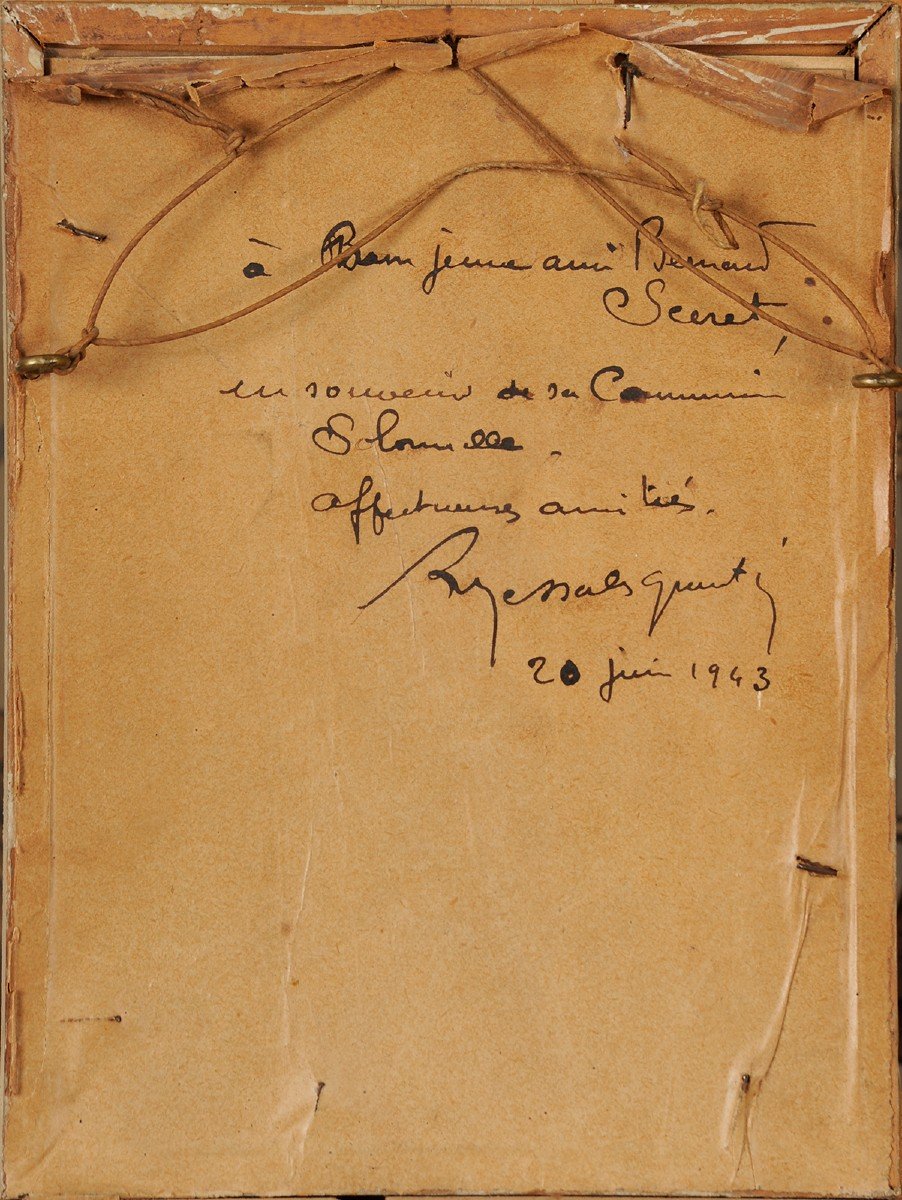 à mon jeune ami Bernard
Seeret
en souvenir de sa Communion
Solennelle.
affectueuses amitiés.
20 juin 1943